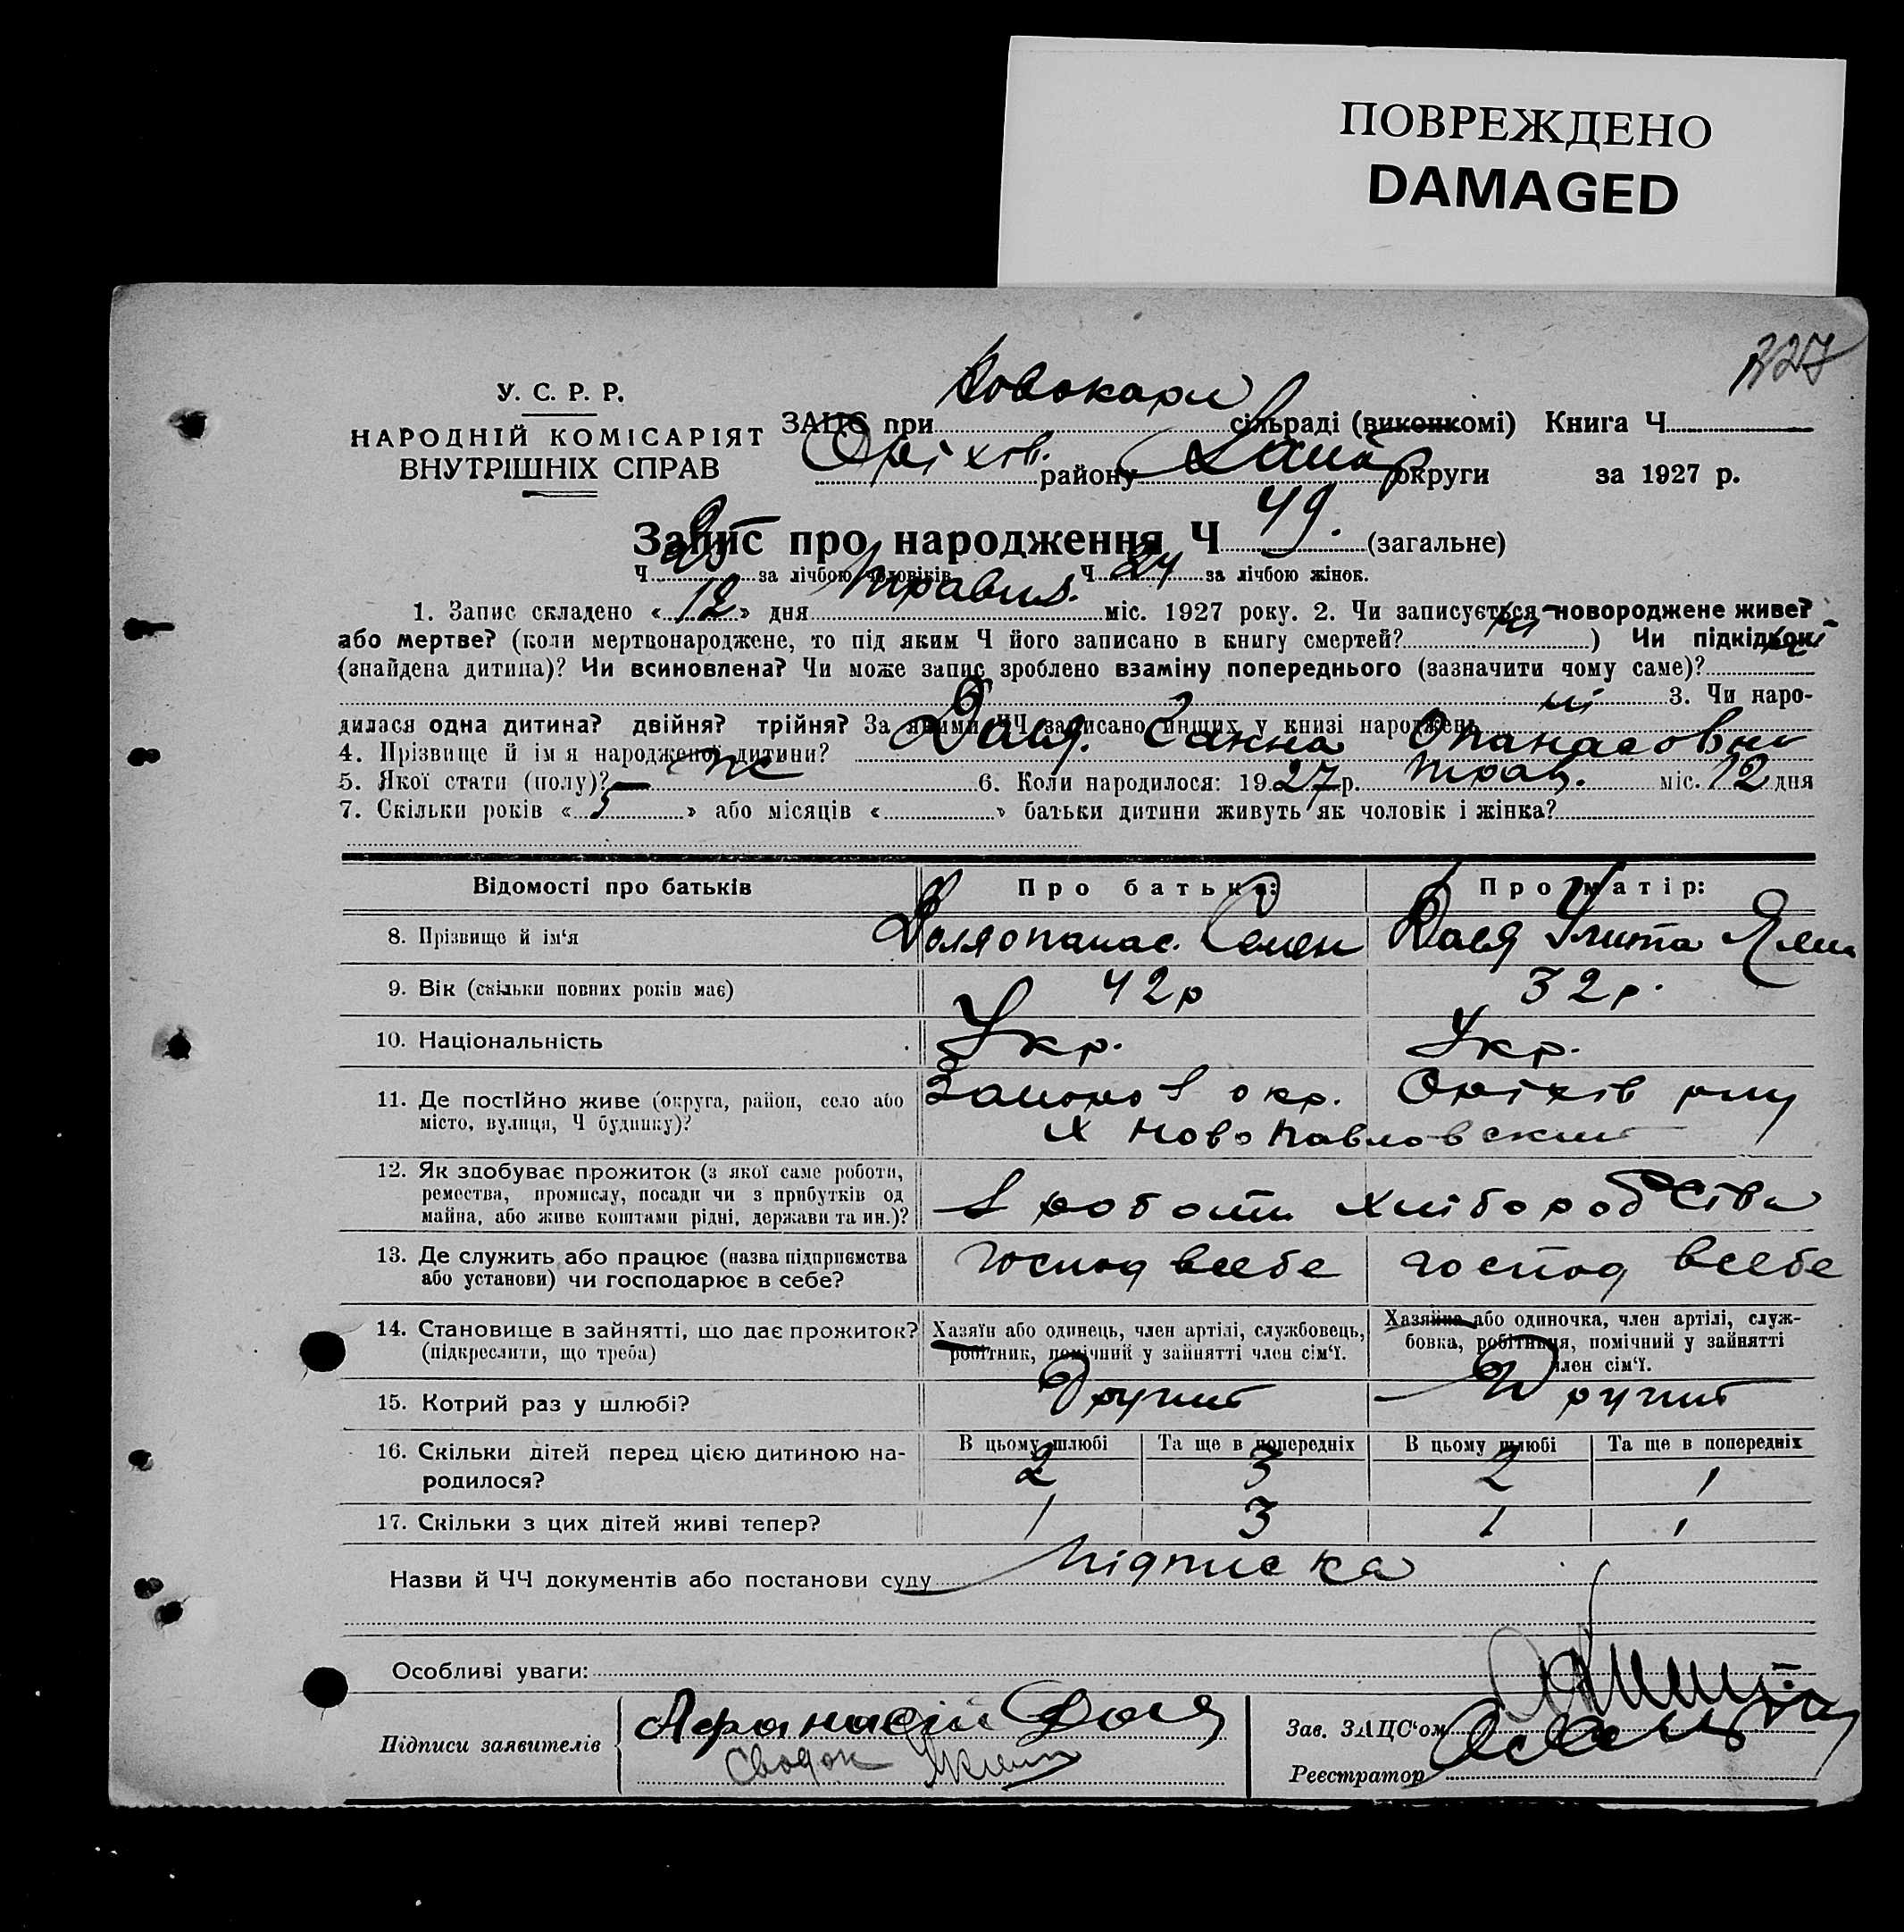 ПОВРЕЖДЕНО
DAMAGED
327
У. С. Р. Р.
НАРОДНІЙ КОМІСАРІЯТ
ВНУТРІШНІХ СПРАВ
ЗАЦС при Новокарл сільраді (виконкомі) Книга Ч
Оріхів. району Запор округи за 1927 р.
Запис про народження Ч 49. (загальне)
Ч 25 за лічбою чоловіків Ч 24 за лічбою жінок.
1. Запис складено «12» дня травня. міс. 1927 року. 2. Чи записується новороджене живе?
або мертве? (коли мертвонароджене, то під яким Ч його записано в книгу смертей? ні) Чи підкідьок
(знайдена дитина)? Чи всиновлена? Чи може запис зроблено взаміну попереднього (зазначити чому саме)?
ні 3. Чи наро-
дилася одна дитина? двійня? трійня? За якими ЧЧ записано инших у книзі народжень
4. Прізвище й ім'я народженої дитини? Доля. Ганна Опанасовна
5. Якої стати (полу)? ж 6. Коли народилося: 1927 р. трав. міс. 12 дня
7. Скільки років «5» або місяців « » батьки дитини живуть як чоловік і жінка?
Відомості про батьків Про батька: Про матір:
8. Прізвище й ім'я Доля опанас. Семен Доля Улита Яким
9. Вік (скільки повних років має) 42р 32р.
10. Національність Укр. Укр.
11. Де постійно живе (округа, район, село або Запоро окр. Оріхів рну
місто, вулиця, Ч будинку)? х Новопавловский
12. Як здобуває прожиток (з якої саме роботи,
ремества, промислу, посади чи з прибутків од роботи хліборобства
майна, або живе коштами рідні, держави та ин.)?
13. Де служить або працює (назва підприємства господ всебе господ всебе
або установи) чи господарює в себе?
14. Становище в зайнятті, що дає прожиток? Хазяїн або одинець, член артілі, службовець, Хазяйка або одиночка, член артілі, служ-
(підкреслити, що треба) робітник, помічний у зайнятті член сім'ї. бовка, робітниця, помічний у зайнятті
член сім'ї.
15. Котрий раз у шлюбі? Другий Другий
16. Скільки дітей перед цією дитиною на- В цьому шлюбі Та ще в попередніх В цьому шлюбі Та ще в попередніх
родилося? 2 3 2 1
17. Скільки з цих дітей живі тепер? 1 3 1 1
Назви й ЧЧ документів або постанови суду Підписка
Особливі уваги:
Підписи заявителів Афанасій Доля
Зав. ЗАЦС'ом
Реєстратор